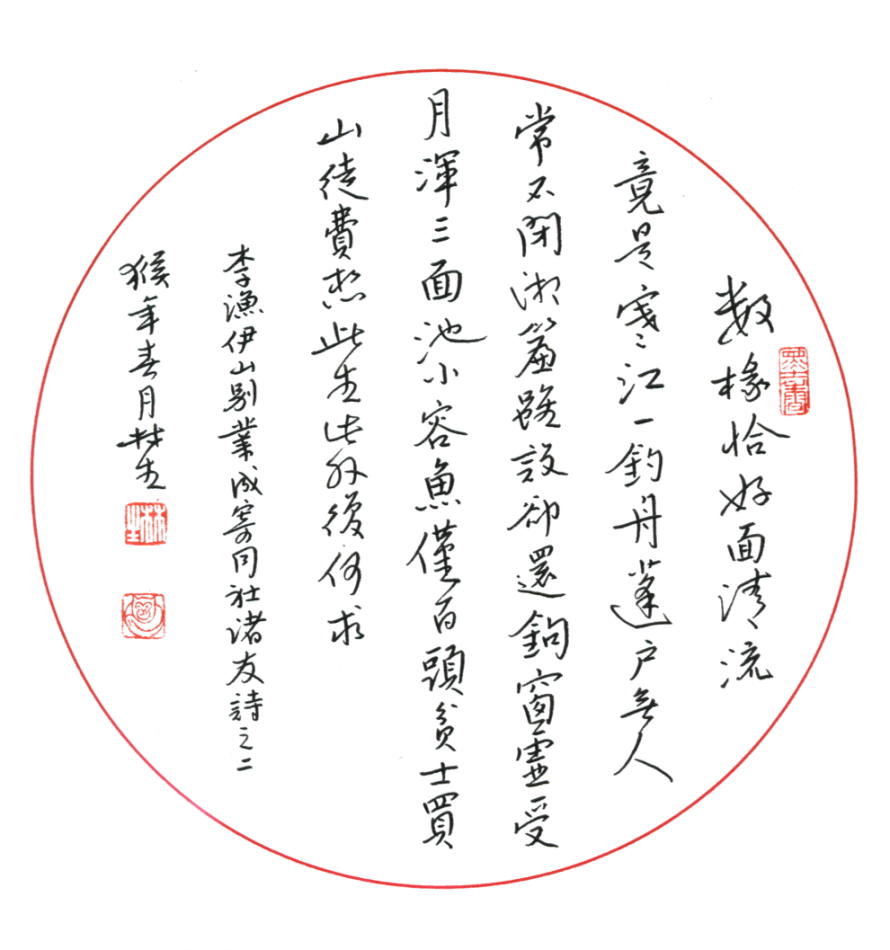 数椽恰好面清流
竟是寒江一釣舟蓬户無人
常不閉湘簾雖設卻還鉤窗虛受
月渾三面池小容魚僅百頭貧士買
山徒費想此生此外復何求
李漁伊山别業成寄同社诸友詩之二
猴年春月林生
林生